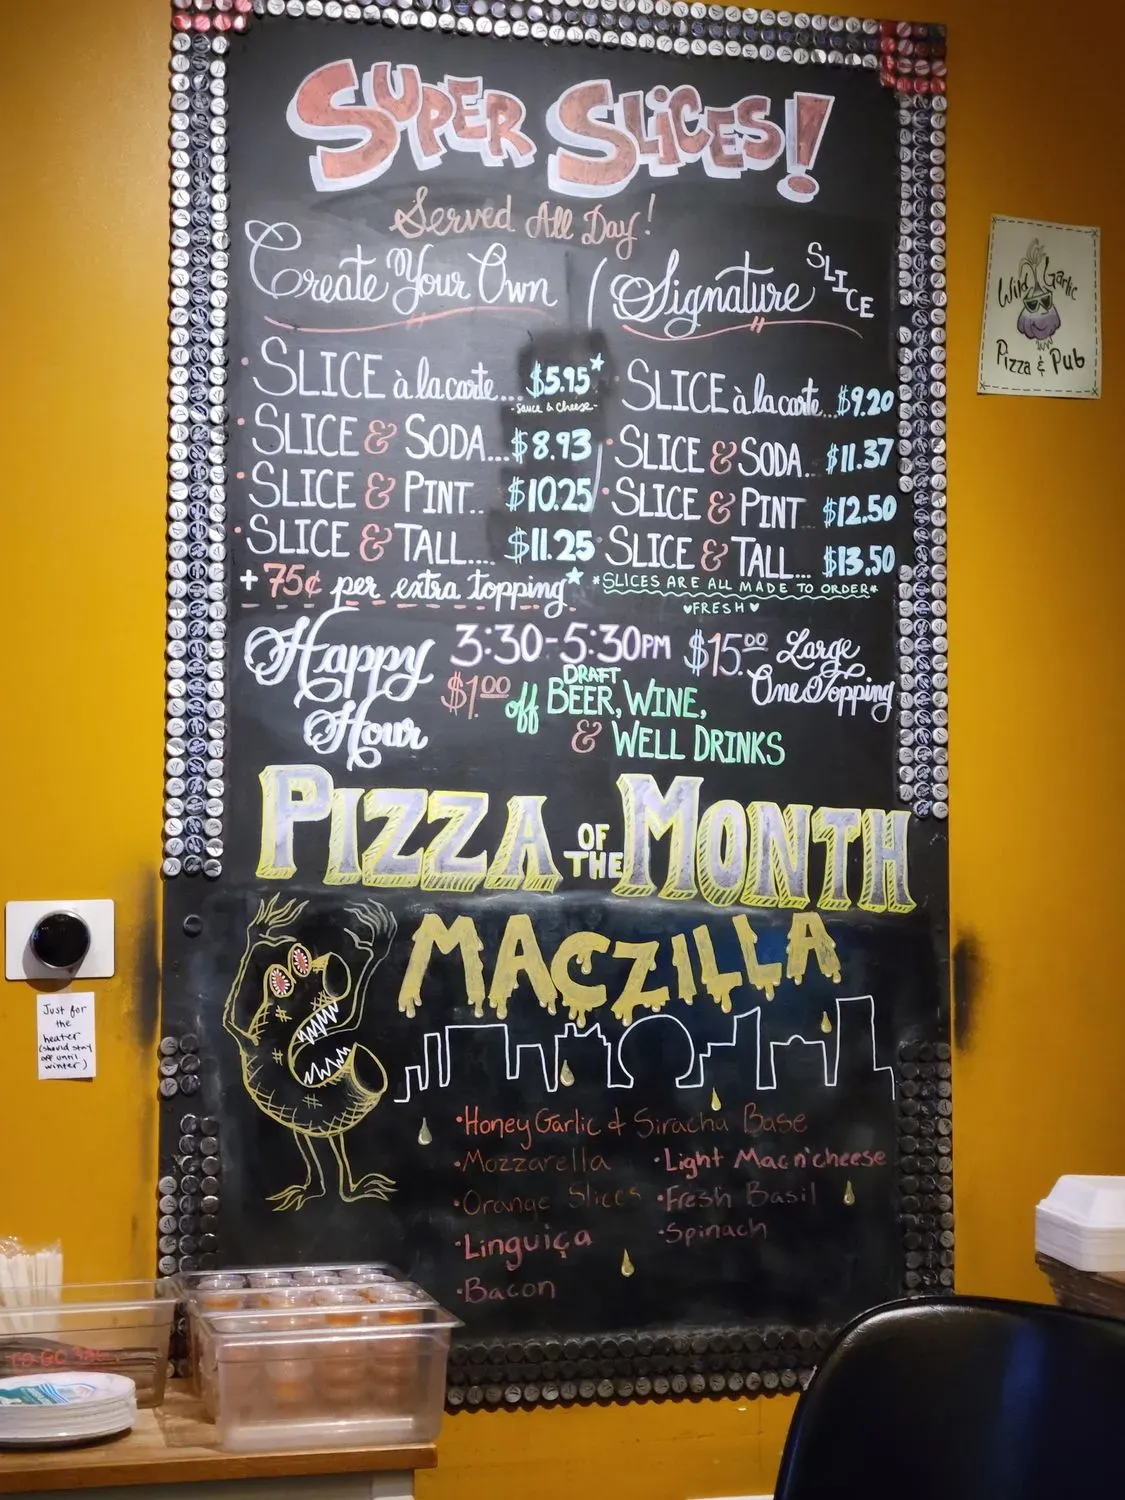 SUPER SLICES!
Served All Day!
Create Your Own
SLICE à la carte... $5.95*
-Sauce & Cheese-
SLICE & SODA... $8.93
SLICE & PINT.. $10.25
SLICE & TALL.... $11.25
+ 75¢ per extra topping*
Signature SLICE
SLICE à la carte... $9.20
SLICE & SODA.. $11.37
SLICE & PINT $12.50
SLICE & TALL... $13.50
*SLICES ARE ALL MADE TO ORDER*
♥FRESH♥
Happy Hour
3:30-5:30PM
$1.00 off DRAFT BEER, WINE,
& WELL DRINKS
$15.00 Large
One Topping
PIZZA OF THE MONTH
MACZILLA
•Honey Garlic & Siracha Base
•Mozzarella •Light Mac n'cheese
•Orange Slices •Fresh Basil
•Linguiça •Spinach
•Bacon
Wild Garlic
Pizza & Pub
Just for
the
heater
(should stay
off until
winter)
TO GO